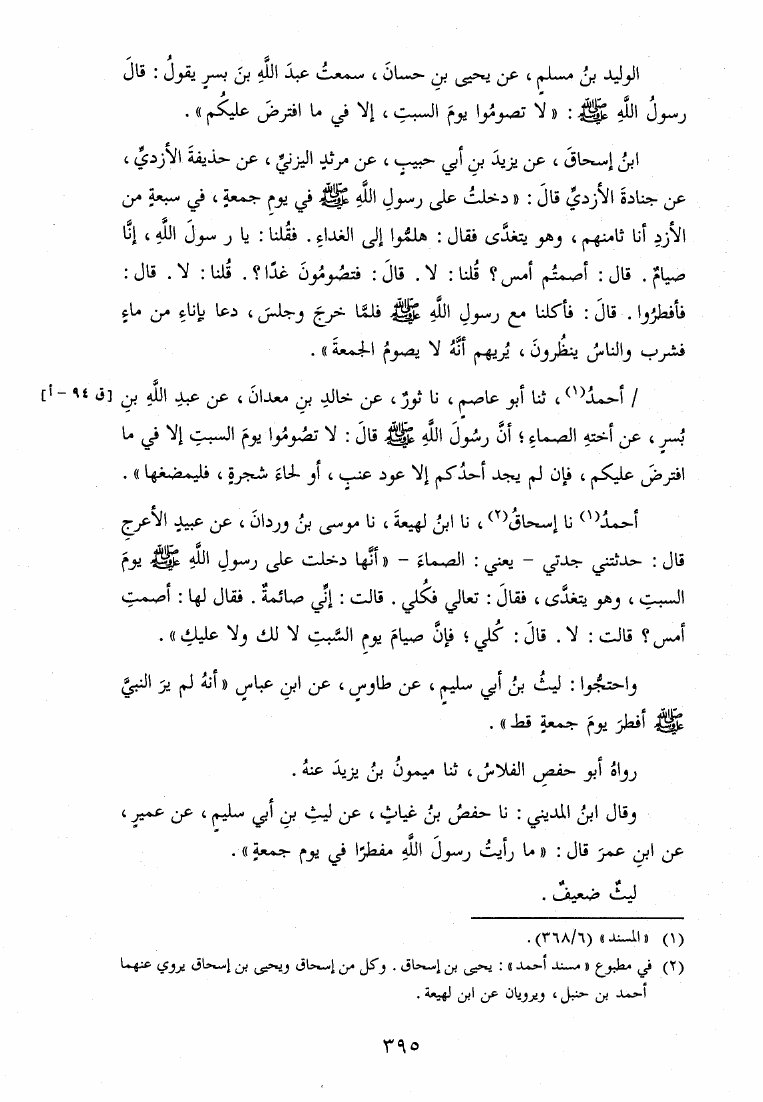 الوليد بنُ مسلمٍ، عن يحيى بنِ حسانَ، سمعتُ عبدَ اللَّهِ بنَ بسرٍ يقولُ: قالَ
رسولُ اللَّهِ ﷺ: «لا تصومُوا يومَ السبتِ، إلا في ما افترضَ عليكُم».
ابنُ إسحاقَ، عن يزيدَ بنِ أبي حبيبٍ، عن مرثدِ اليزنيِّ، عن حذيفةَ الأزديِّ،
عن جنادةَ الأزديِّ قالَ: «دخلتُ على رسولِ اللَّهِ ﷺ في يومِ جمعةٍ، في سبعةٍ من
الأزدِ أنا ثامنهم، وهو يتغدَّى فقال: هلمُّوا إلى الغداءِ. فقُلنا: يا ر سولَ اللَّهِ، إنَّا
صيامٌ. قال: أصمتُم أمس؟ قُلنا: لا. قالَ: فتصُومُونَ غدًا؟. قُلنا: لا. قال:
فأفطرُوا. قالَ: فأكلنا مع رسولِ اللَّهِ ﷺ فلمَّا خرجَ وجلسَ، دعا بإناءِ من ماءٍ
فشرب والناسُ ينظُرونَ، يُريهم أنَّهُ لا يصومُ الجمعةَ».
/ أحمدُ(١)، ثنا أبو عاصمٍ، نا ثورٌ، عن خالدِ بنِ معدانَ، عن عبدِ اللَّهِ بنِ [ق ٩٤ - أ]
بُسرٍ، عن أختهِ الصماءِ؛ أنَّ رسُولَ اللَّهِ ﷺ قالَ: لا تصُومُوا يومَ السبتِ إلا في ما
افترضَ عليكم، فإن لم يجد أحدُكم إلا عود عنبٍ، أو لحاءَ شجرةٍ، فليمضغها».
أحمدُ(١) نا إسحاقُ(٢)، نا ابنُ لهيعةَ، نا موسى بنُ وردانَ، عن عبيدٍ الأعرجِ
قال: حدثتني جدتي - يعني: الصماءَ - «أنَّها دخلت على رسولِ اللَّهِ ﷺ يومَ
السبتِ، وهو يتغدَّى، فقالَ: تعالي فكُلي. قالت: إنِّي صائمةٌ. فقال لها: أصمتِ
أمس؟ قالت: لا. قالَ: كُلي؛ فإنَّ صيامَ يومِ السَّبتِ لا لك ولا عليكِ».
واحتجُّوا: ليثُ بنُ أبي سليمٍ، عن طاوسٍ، عن ابنِ عباسٍ «أنهُ لم يرَ النبيَّ
ﷺ أفطرَ يومَ جمعةٍ قط».
رواهُ أبو حفصٍ الفلاسُ، ثنا ميمونُ بنُ يزيدَ عنهُ.
وقال ابنُ المديني: نا حفصُ بنُ غياثٍ، عن ليثِ بنِ أبي سليمٍ، عن عميرٍ،
عن ابنِ عمرَ قال: «ما رأيتُ رسولَ اللَّهِ مفطرًا في يوم جمعةٍ».
ليثٌ ضعيفٌ.
(١) «المسند» (٣٦٨/٦).
(٢) في مطبوع «مسند أحمد»: يحيى بن إسحاق. وكل من إسحاق ويحيى بن إسحاق يروي عنهما
أحمد بن حنبل، ويرويان عن ابن لهيعة.
٣٩٥